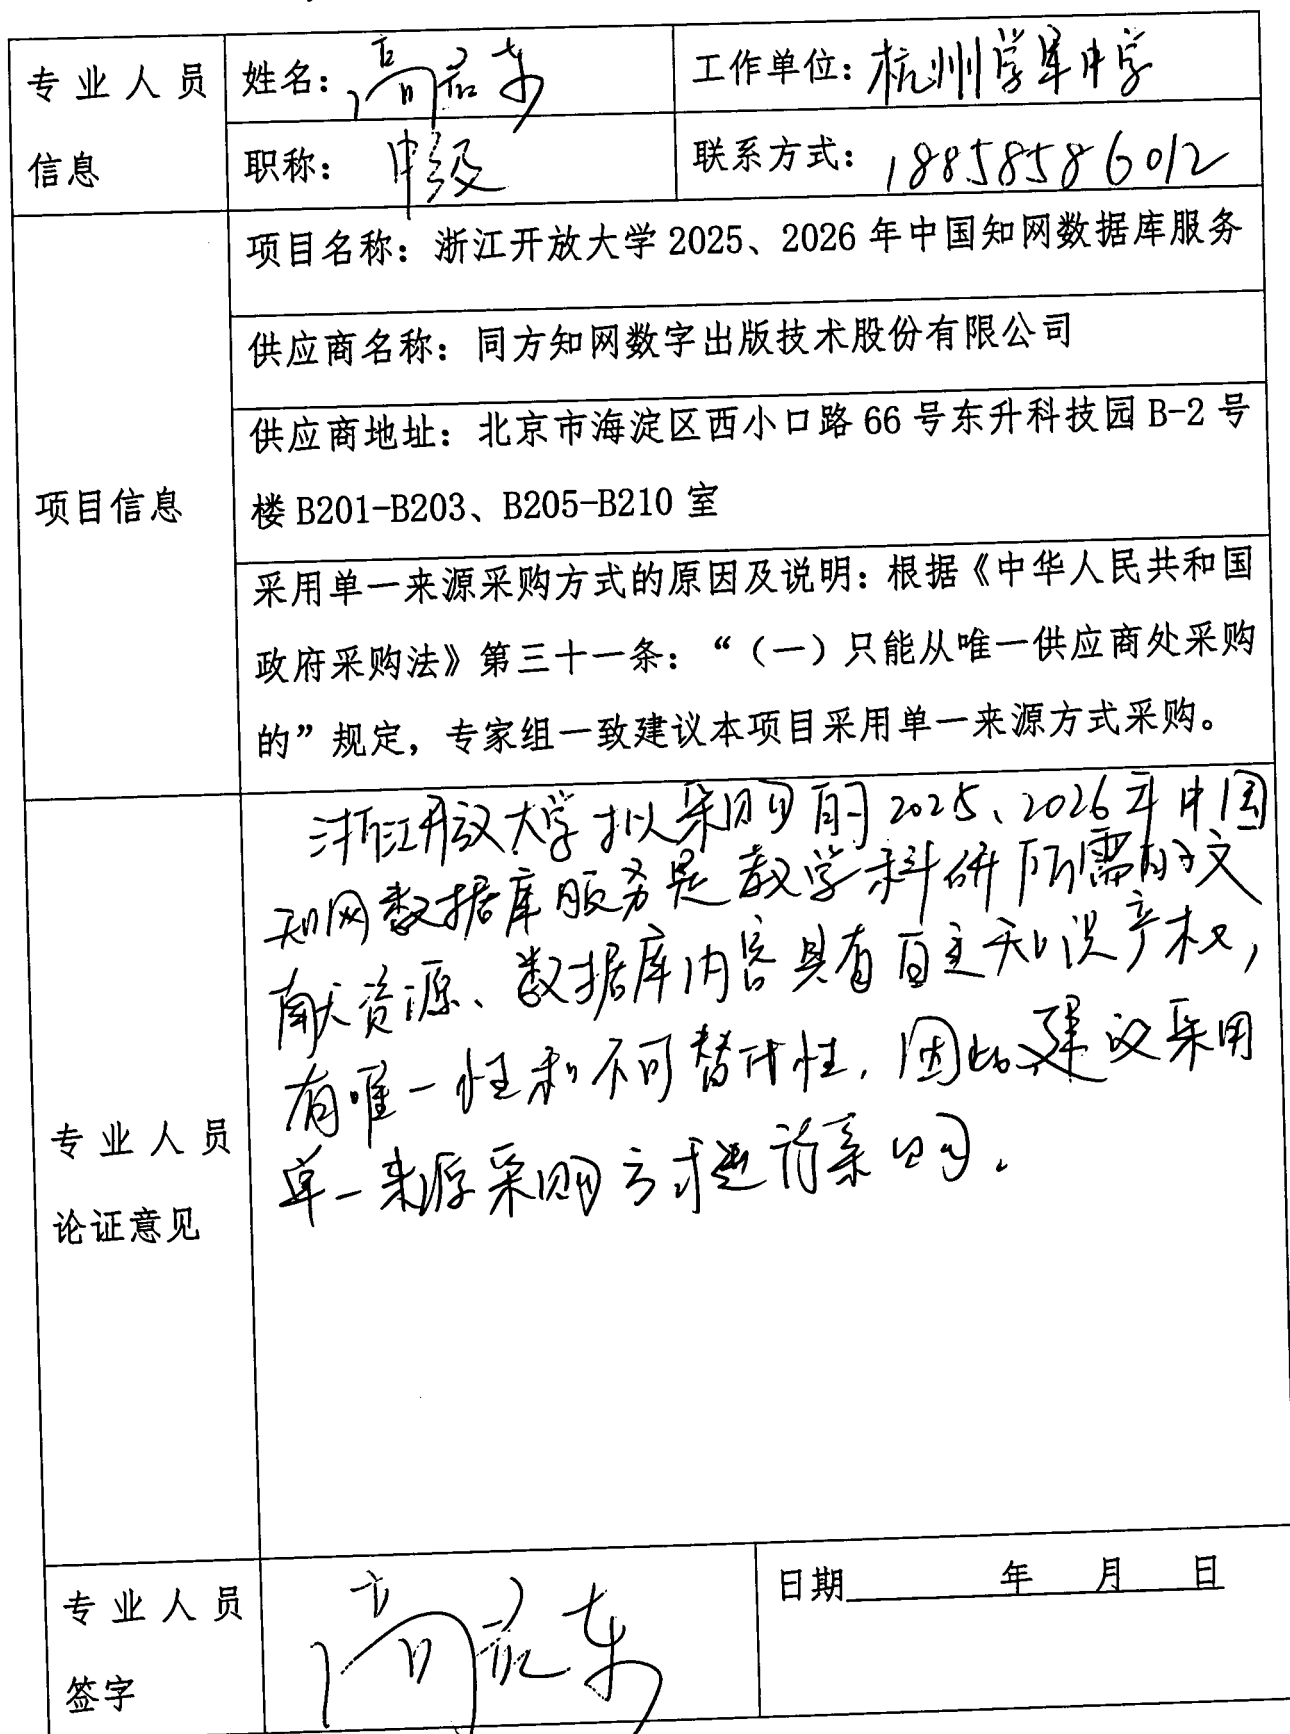 专业人员信息
姓名：高君东
工作单位：杭州学军中学
职称：中级
联系方式：18858586012
项目信息
项目名称：浙江开放大学2025、2026年中国知网数据库服务
供应商名称：同方知网数字出版技术股份有限公司
供应商地址：北京市海淀区西小口路66号东升科技园B-2号
楼B201-B203、B205-B210室
采用单一来源采购方式的原因及说明：根据《中华人民共和国
政府采购法》第三十一条：“（一）只能从唯一供应商处采购
的”规定，专家组一致建议本项目采用单一来源方式采购。
专业人员
论证意见
浙江开放大学拟采购的2025、2026年中国
知网数据库服务是教学科研所需的文
献资源、数据库内容具有自主知识产权，
有唯一性和不可替代性，因此建议采用
单一来源采购方式进行采购。
专业人员
签字
日期 年 月 日